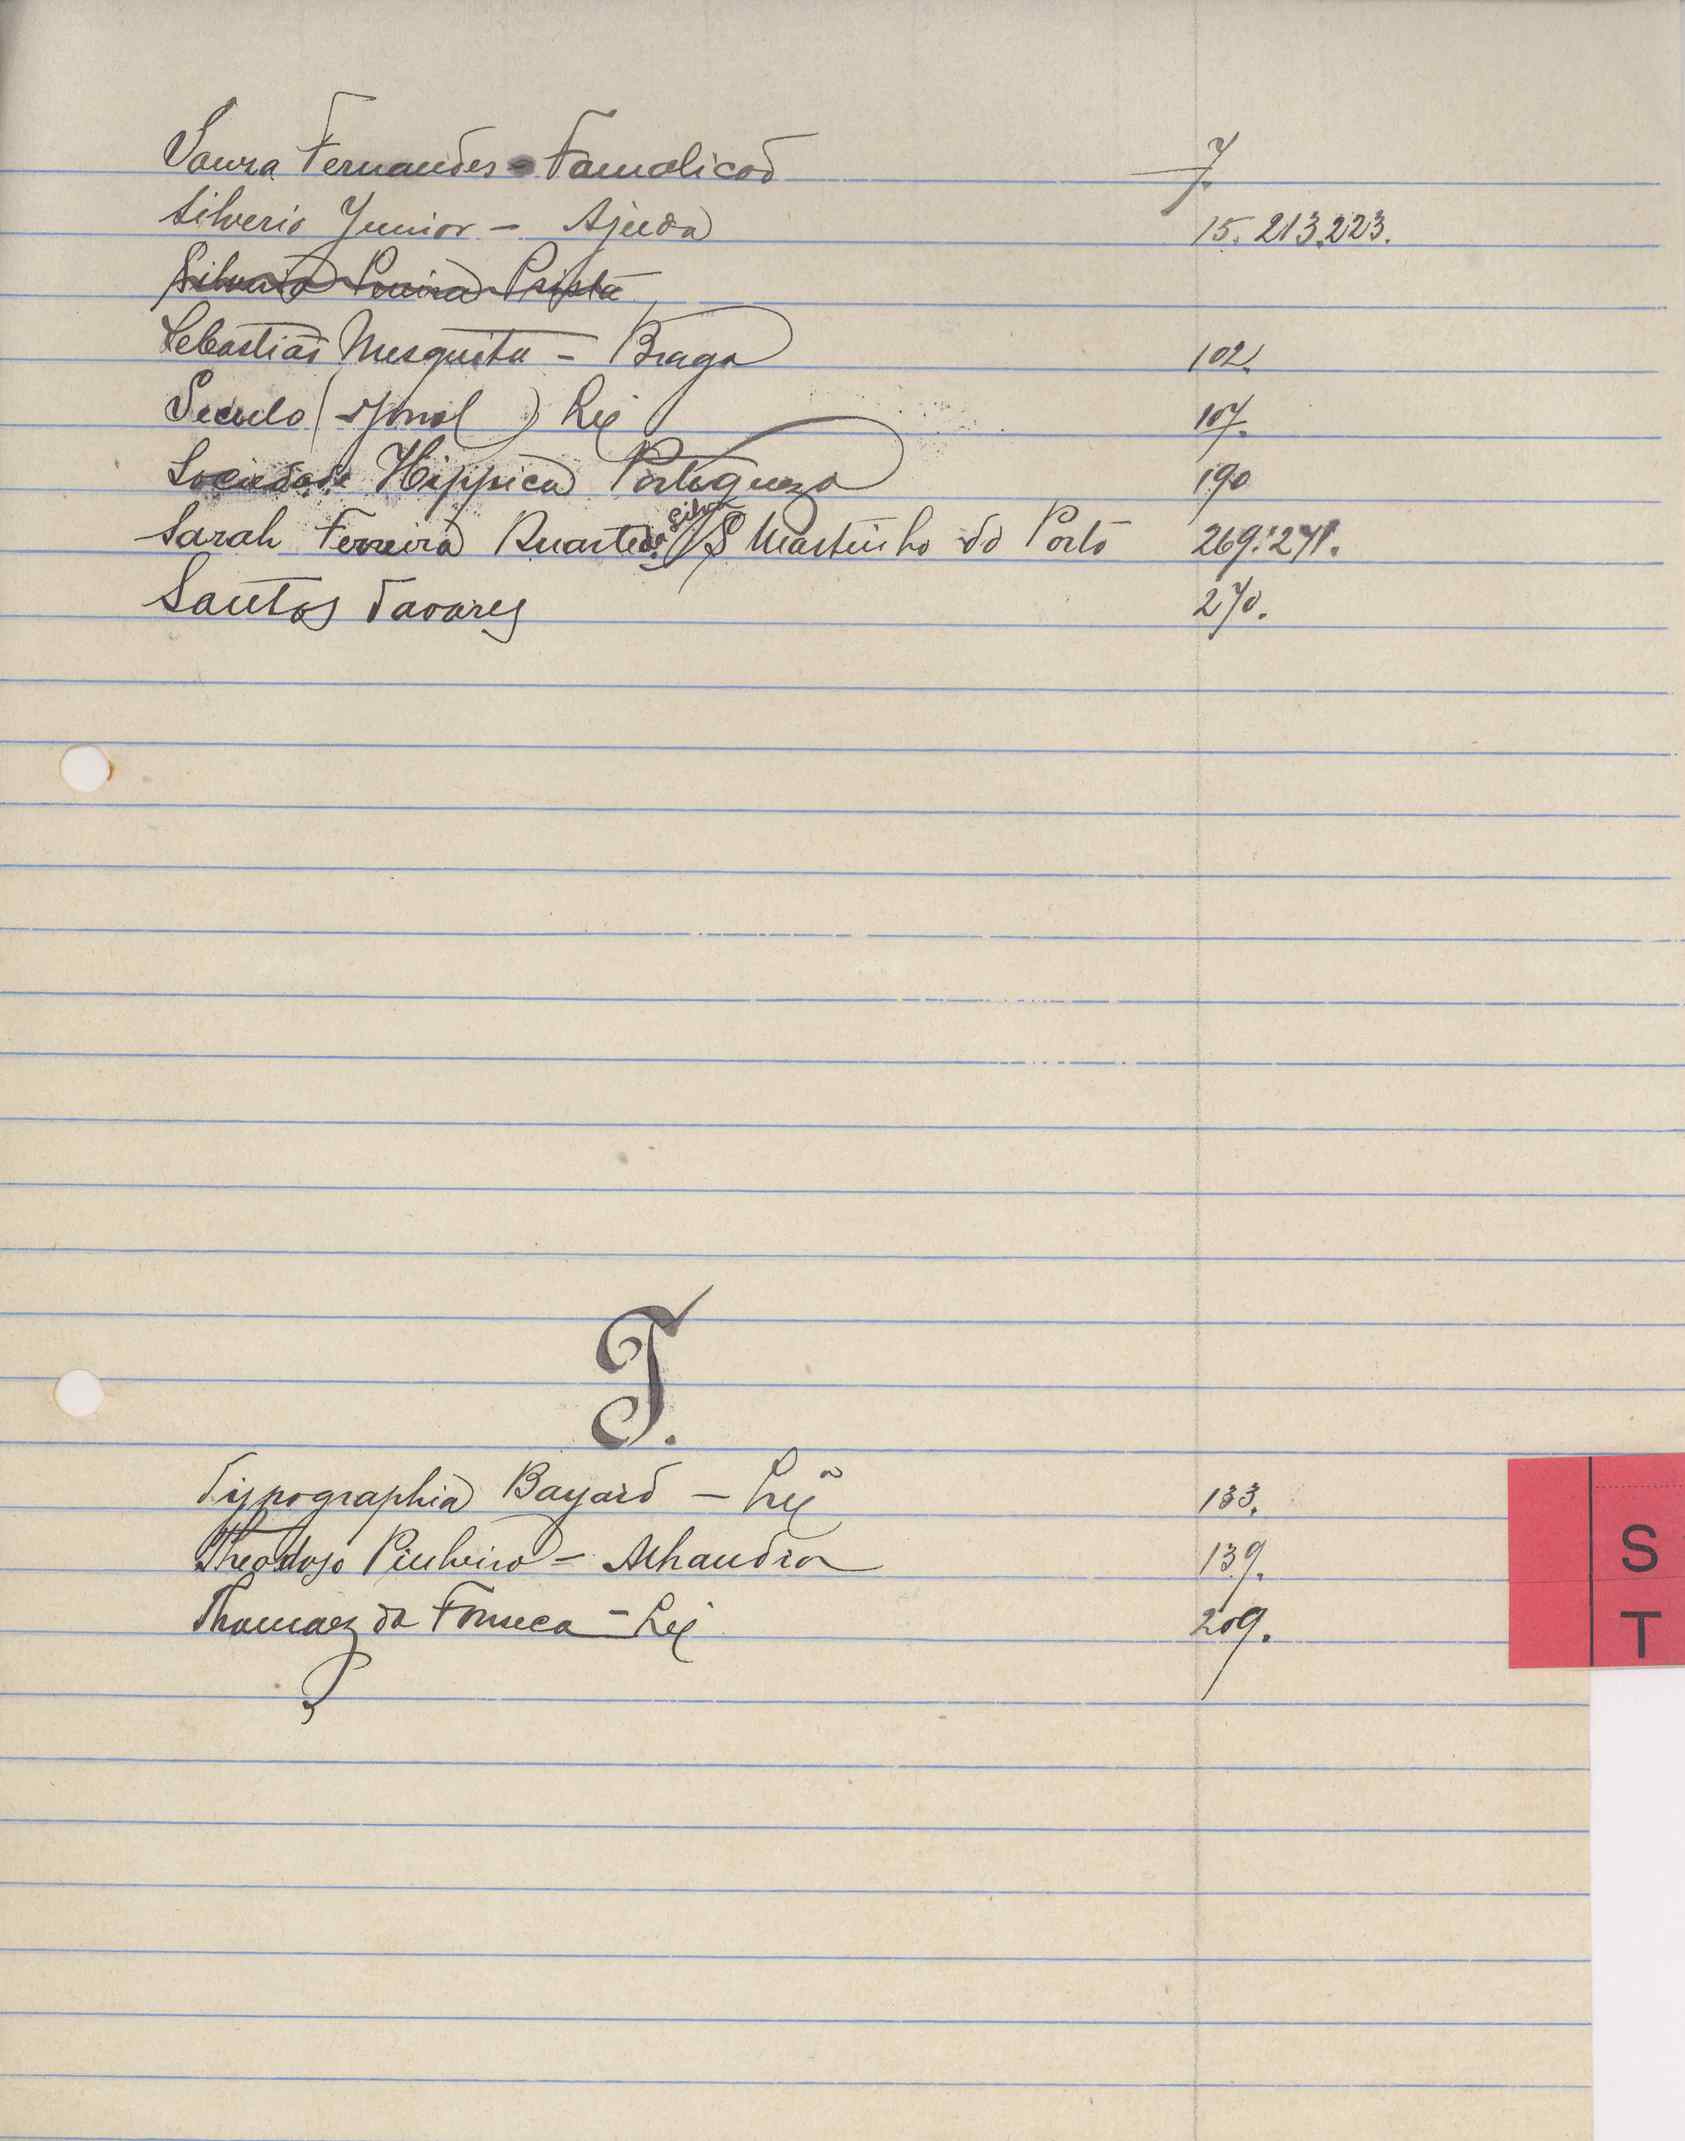 Souza Fernandes - Famalicão 7.
Silverio Junior - Ajuda 15. 213. 223.
Silverio Pereira Prista
Sebastião Mesquita - Braga 102.
Seculo (Jornal) Lx 107.
Sociedade Hippica Portugueza 190
Sarah Ferreira Duarte da Silva S Martinho do Porto 269. 271.
Santos Tavares 270.
T.
Typographia Bayard - Lxª 133.
Theodoso Pinheiro - Alhandra 139.
Thomaz da Fonseca - Lx 209.
S
T